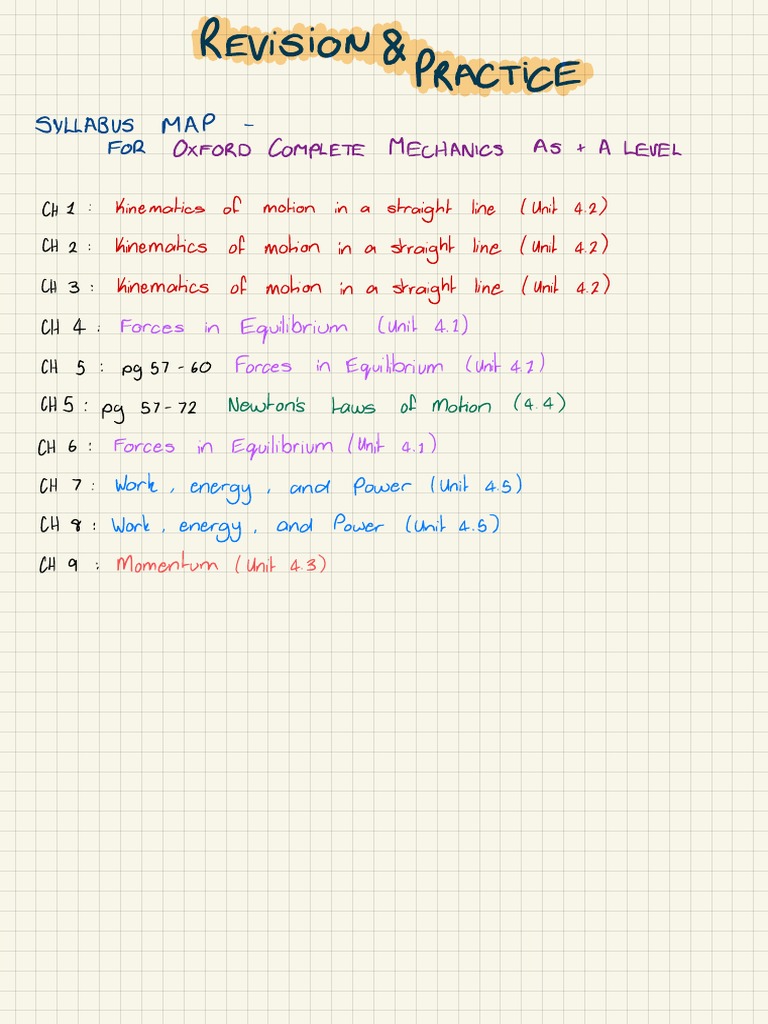 REVISION &
PRACTICE
SYLLABUS MAP -
FOR OXFORD COMPLETE MECHANICS AS + A LEVEL
CH 1 : Kinematics of motion in a straight line (Unit 4.2)
CH 2 : Kinematics of motion in a straight line (Unit 4.2)
CH 3 : Kinematics of motion in a straight line (Unit 4.2)
CH 4 : Forces in Equilibrium (Unit 4.1)
CH 5 : pg 57-60 Forces in Equilibrium (Unit 4.1)
CH 5 : pg 57-72 Newton's Laws of Motion (4.4)
CH 6 : Forces in Equilibrium (Unit 4.1)
CH 7 : Work, energy, and Power (Unit 4.5)
CH 8 : Work, energy, and Power (Unit 4.5)
CH 9 : Momentum (Unit 4.3)